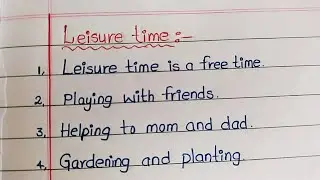 Leisure time :-
1. Leisure time is a free time.
2. Playing with friends.
3. Helping to mom and dad.
4. Gardening and planting.